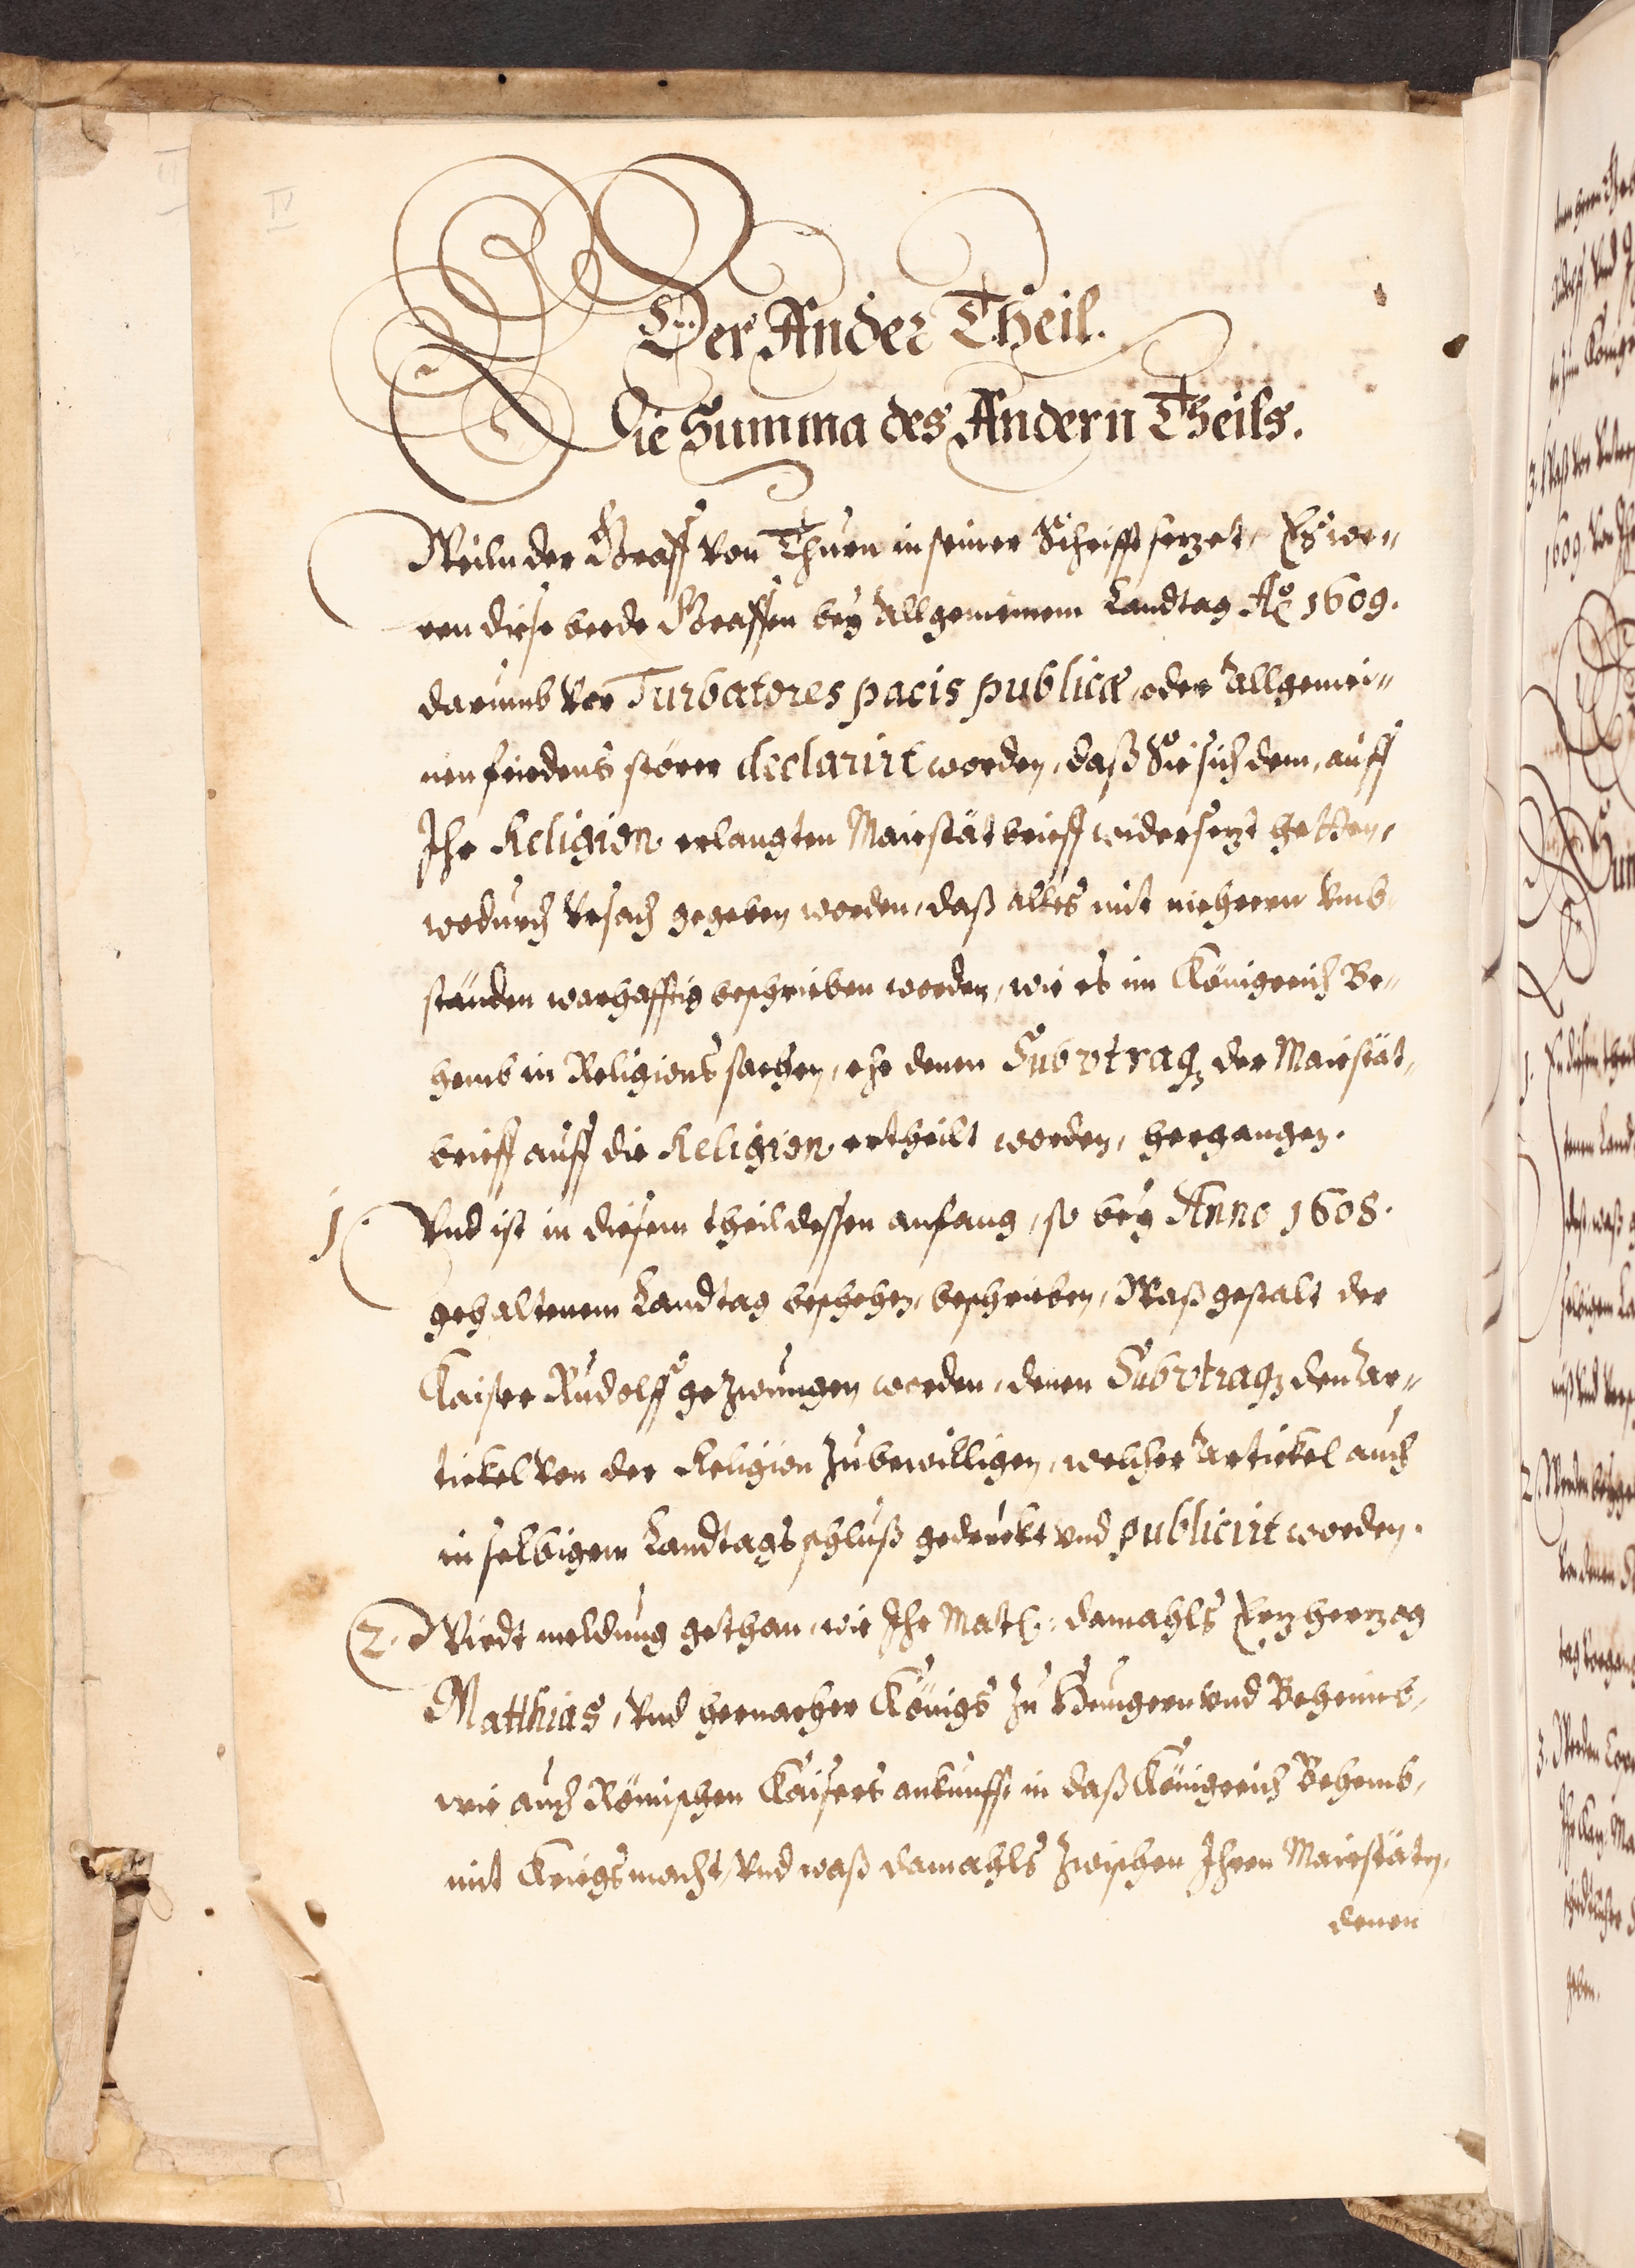 IV
Der Ander Theil.
Die Summa des Andern Theils.
Weiln der Graff von Thurn in seiner Schrifft sezet, Es we„
ren diese beede Graffen bey Allgemeinem Landtag Ao 1609.
darumb vor Turbatores pacis publicæ, oder Allgemei„
nen friedens störer declarirt worden, daß Sie sich dem, auff
Ihr Religion erlangten Maiestätbrieff widersezt hetten,
wodurch Vrsach gegeben worden, daß alles mit mehrern Vmb
ständen warhafftig beschrieben worden, wie es im Königreich Be„
hemb in Religions sachen, ehe denen Sub utraq3 der Maiestät„
brieff auff die Religion ertheilt worden, hergangen.
1. Vnd ist in diesem theil dessen anfang, so bey Anno 1608.
gehaltenem Landtag beschehen, beschrieben, Waß gestalt der
Kaiser Rudolff gezwungen worden, denen Sub utraq3 den Ar„
tickel von der Religion zu bewilligen, welcher Artickel auch
in selbigem Landtags schluß gedruckt vnd publicirt worden.
2. Wirdt meldung gethan, wie Ihr Matt: damahls Erzherzog
Matthias, Vnd hernacher Königs zu Hungern vnd Behemb,
wie auch Römischen Kaisers ankunfft in daß Königreich Behemb,
mit Kriegsmacht, Vnd waß damahls zwischen Ihren Maiestäten,
denen